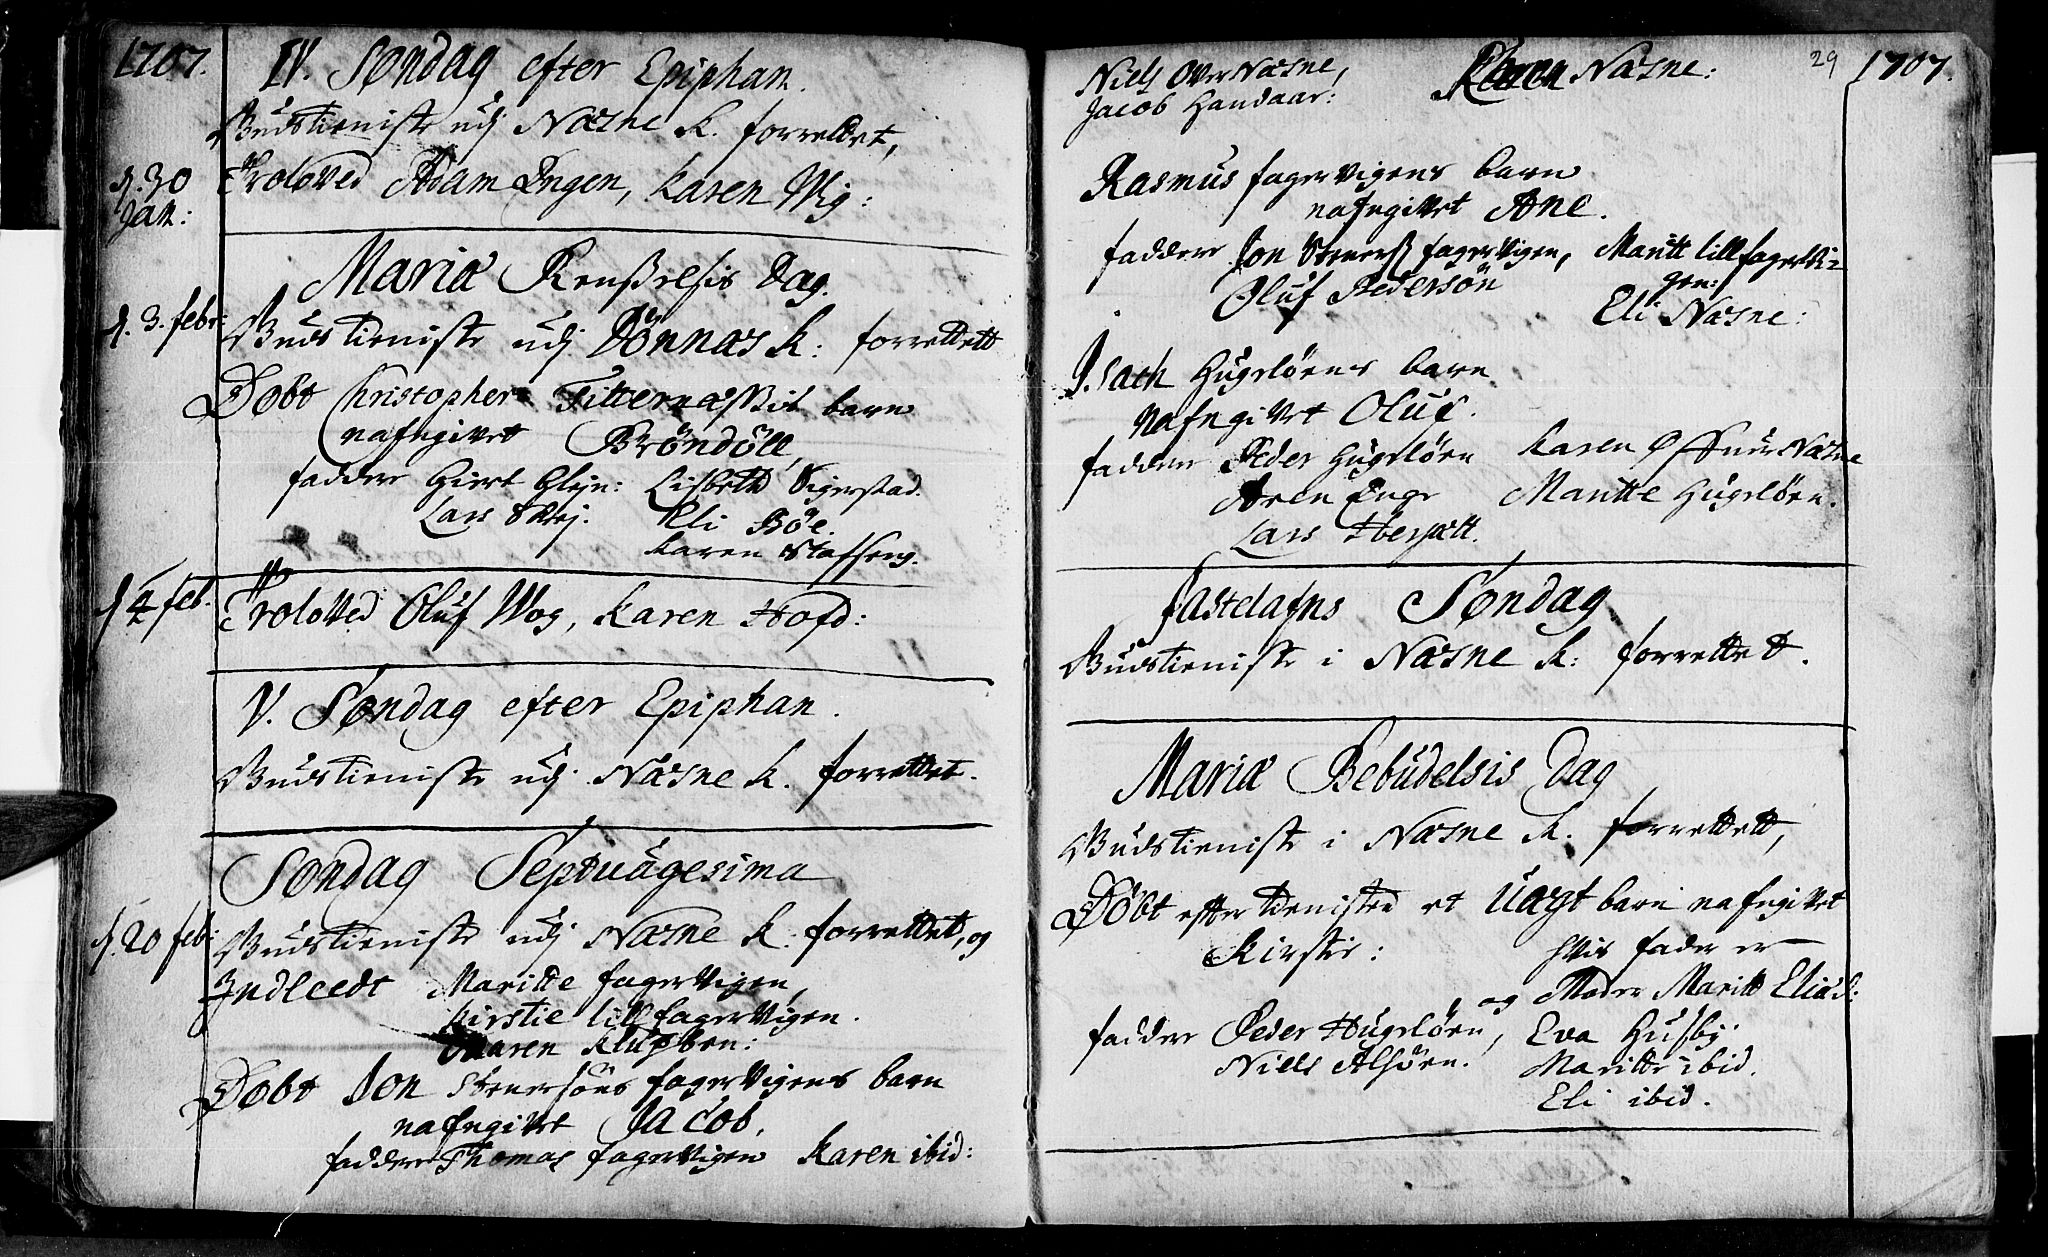 1707.
IV. Søndag efter Epiphan.
Gudstieniste udj Næsne K. forrettet,
d. 30 Jan:
Troloved Adam Engen, Karen Wig:
Mariæ Renßelsis Dag.
d. 3. febr:
Gudstieniste udj Dönnæs K: forrettett
Døbt Christopher Titternæsvit barn
nafngivet Bröndöll,
faddere Giert Glejn: Lisbeth Sigerstad.
Lars Wej. Eli Böe.
Karen Stafseng.
d 4 feb.
Troloved Oluf Wog, Karen Hofd:
V. Søndag efter Epiphan.
Gudstieniste udj Næsne K. forrettet.
Søndag Septuagesima
d. 20 feb:
Gudstieniste udj Næsne K. forrettet, og
Indleedt Maritte fagervigen,
Kirstie lill fagervigen.
Maren Klupben:
Døbt Jon Stenersöns fagervigens barn
nafngivet Jacob,
faddere Thomas fagervigen Karen ibid:
Niels Over Næsne, Karen Næsne: 29 1707.
Jacob Handaar:
Rasmus fagervigens barn
nafngivet Ane.
faddere Jon Stenerß fagervigen, Maritt lill fagervi=
gen:
Oluf Pedersön Eli Næsne:
Isach Hugsløens barn
Nafngivet Oluf.
faddere Peder Hugsløen Karen Øffuer Næsne
Aren Enge Maritte Hugsløen.
Lars
fastelafns Søndag
Gudstieniste i Næsne K: forrettet.
Mariæ Bebudelsis Dag
Gudstieniste i Næsne K. forrettett,
Døbt efter tienisten et Uægt barn nafngivet
Kirstie: hvis fader er
og Moder Maritt Eliæd:
faddere Peder Hugsløen, Eva Husby
Niels Alsöen. Maritte ibid.
Eli ibid.